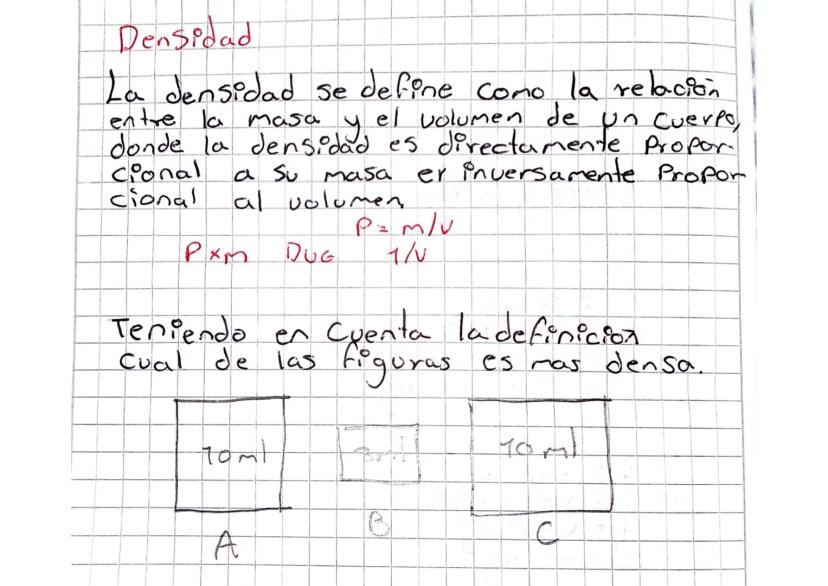 Densidad
La densidad se define como la relación
entre la masa y el volumen de un cuerpo,
donde la densidad es directamente Propor-
cional a su masa er inversamente Propor
cional al volumen,
P = m/v
P x m DVG 1/v
Teniendo en Cuenta la definicion
cual de las figuras es mas densa.
10 ml 10 ml
A B C